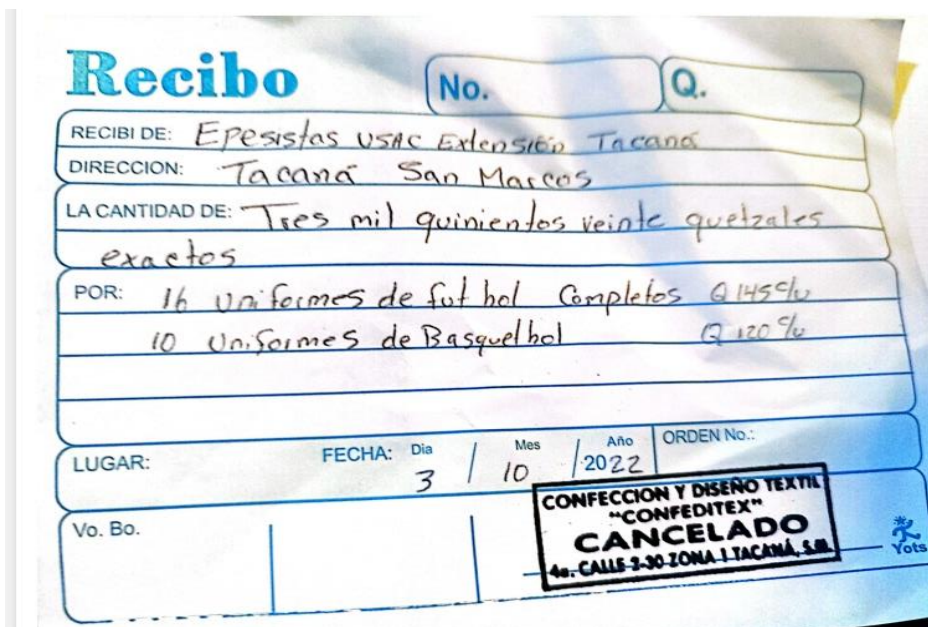 Recibo
No.
Q.
RECIBI DE: Epesistas USAC Extensión Tacaná
DIRECCION: Tacaná San Marcos
LA CANTIDAD DE: Tres mil quinientos veinte quetzales
exactos
POR: 16 Uniformes de futbol Completos Q 145 c/u
10 Uniformes de Basquetbol Q 120 c/u
LUGAR:
FECHA: Dia / Mes / Año
3 / 10 / 2022
ORDEN No.:
Vo. Bo.
CONFECCION Y DISEÑO TEXTIL
"CONFEDITEX"
CANCELADO
4a. CALLE 2-30 ZONA 1 TACANÁ, S.M.
Yots